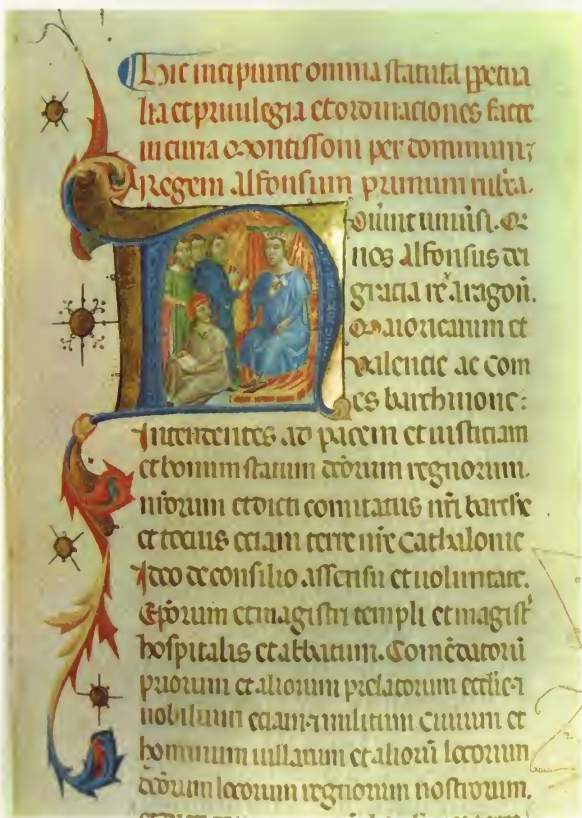 Hic incipiunt omnia statuta ppetua
lia et priuilegia et ordinationes facte
in curia montissoni per dominum
Regem Alfonsum primum
Nouint uniusi. Qz
nos Alfonsus dei
gracia rex aragoñ.
Maioricarum et
Valencie ac com
es barchinone:
Intendentes ad pacem et iusticiam
et bonum statum dcōrum regnorum.
nr̄orum et dicti comitatus nr̄i barchñ
et tocius eciam terre nr̄e Cathalonie
Ideo de consilio assensu et uoluntate.
Ep̄orum et magistri templi et magistˀ
hospitalis et abbatum. Comēdatorū
priorum et aliorum prelatorum ecclie ⁊
nobilium eciam ⁊ militum Ciuium et
hominum uillarum et aliorū locorum
dcōrum locorum regnorum nostrorum.